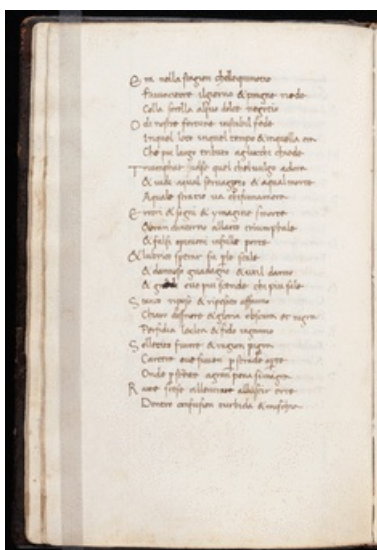 Era nella stagion chellequinotio
Favincitore ilgiorno & progne riede
Colla sorella alsuo dolce negotio
O di nostre fortune instabil fede
Inquel loco inquel tempo & inquella ora
Che piu largo tributo agliocchi chiede
Triomphar volse quel chelvulgo adora
& vidi aqual servaggio & aqual morte
Aquale stratio va chisinnamora
Errori & sogni & ymagine smorte
Eran dintorno allarco triumphale
& false opinioni insulle porte
& lubrico sperar su ple scale
& dannoso guadagno & util danno
& gradi ove piu scende chi piu sale
Stanco riposo & riposato affanno
Chiaro disnore & gloria obscura et nigra
Perfida lealta & fido inganno
Sollicito furore & ragion pigra
Carcere ove siven p strade apte
Onde p strette agran pena simigra
Ratte scese allentrare alluscir erte
Dentro confusion turbida & mischia